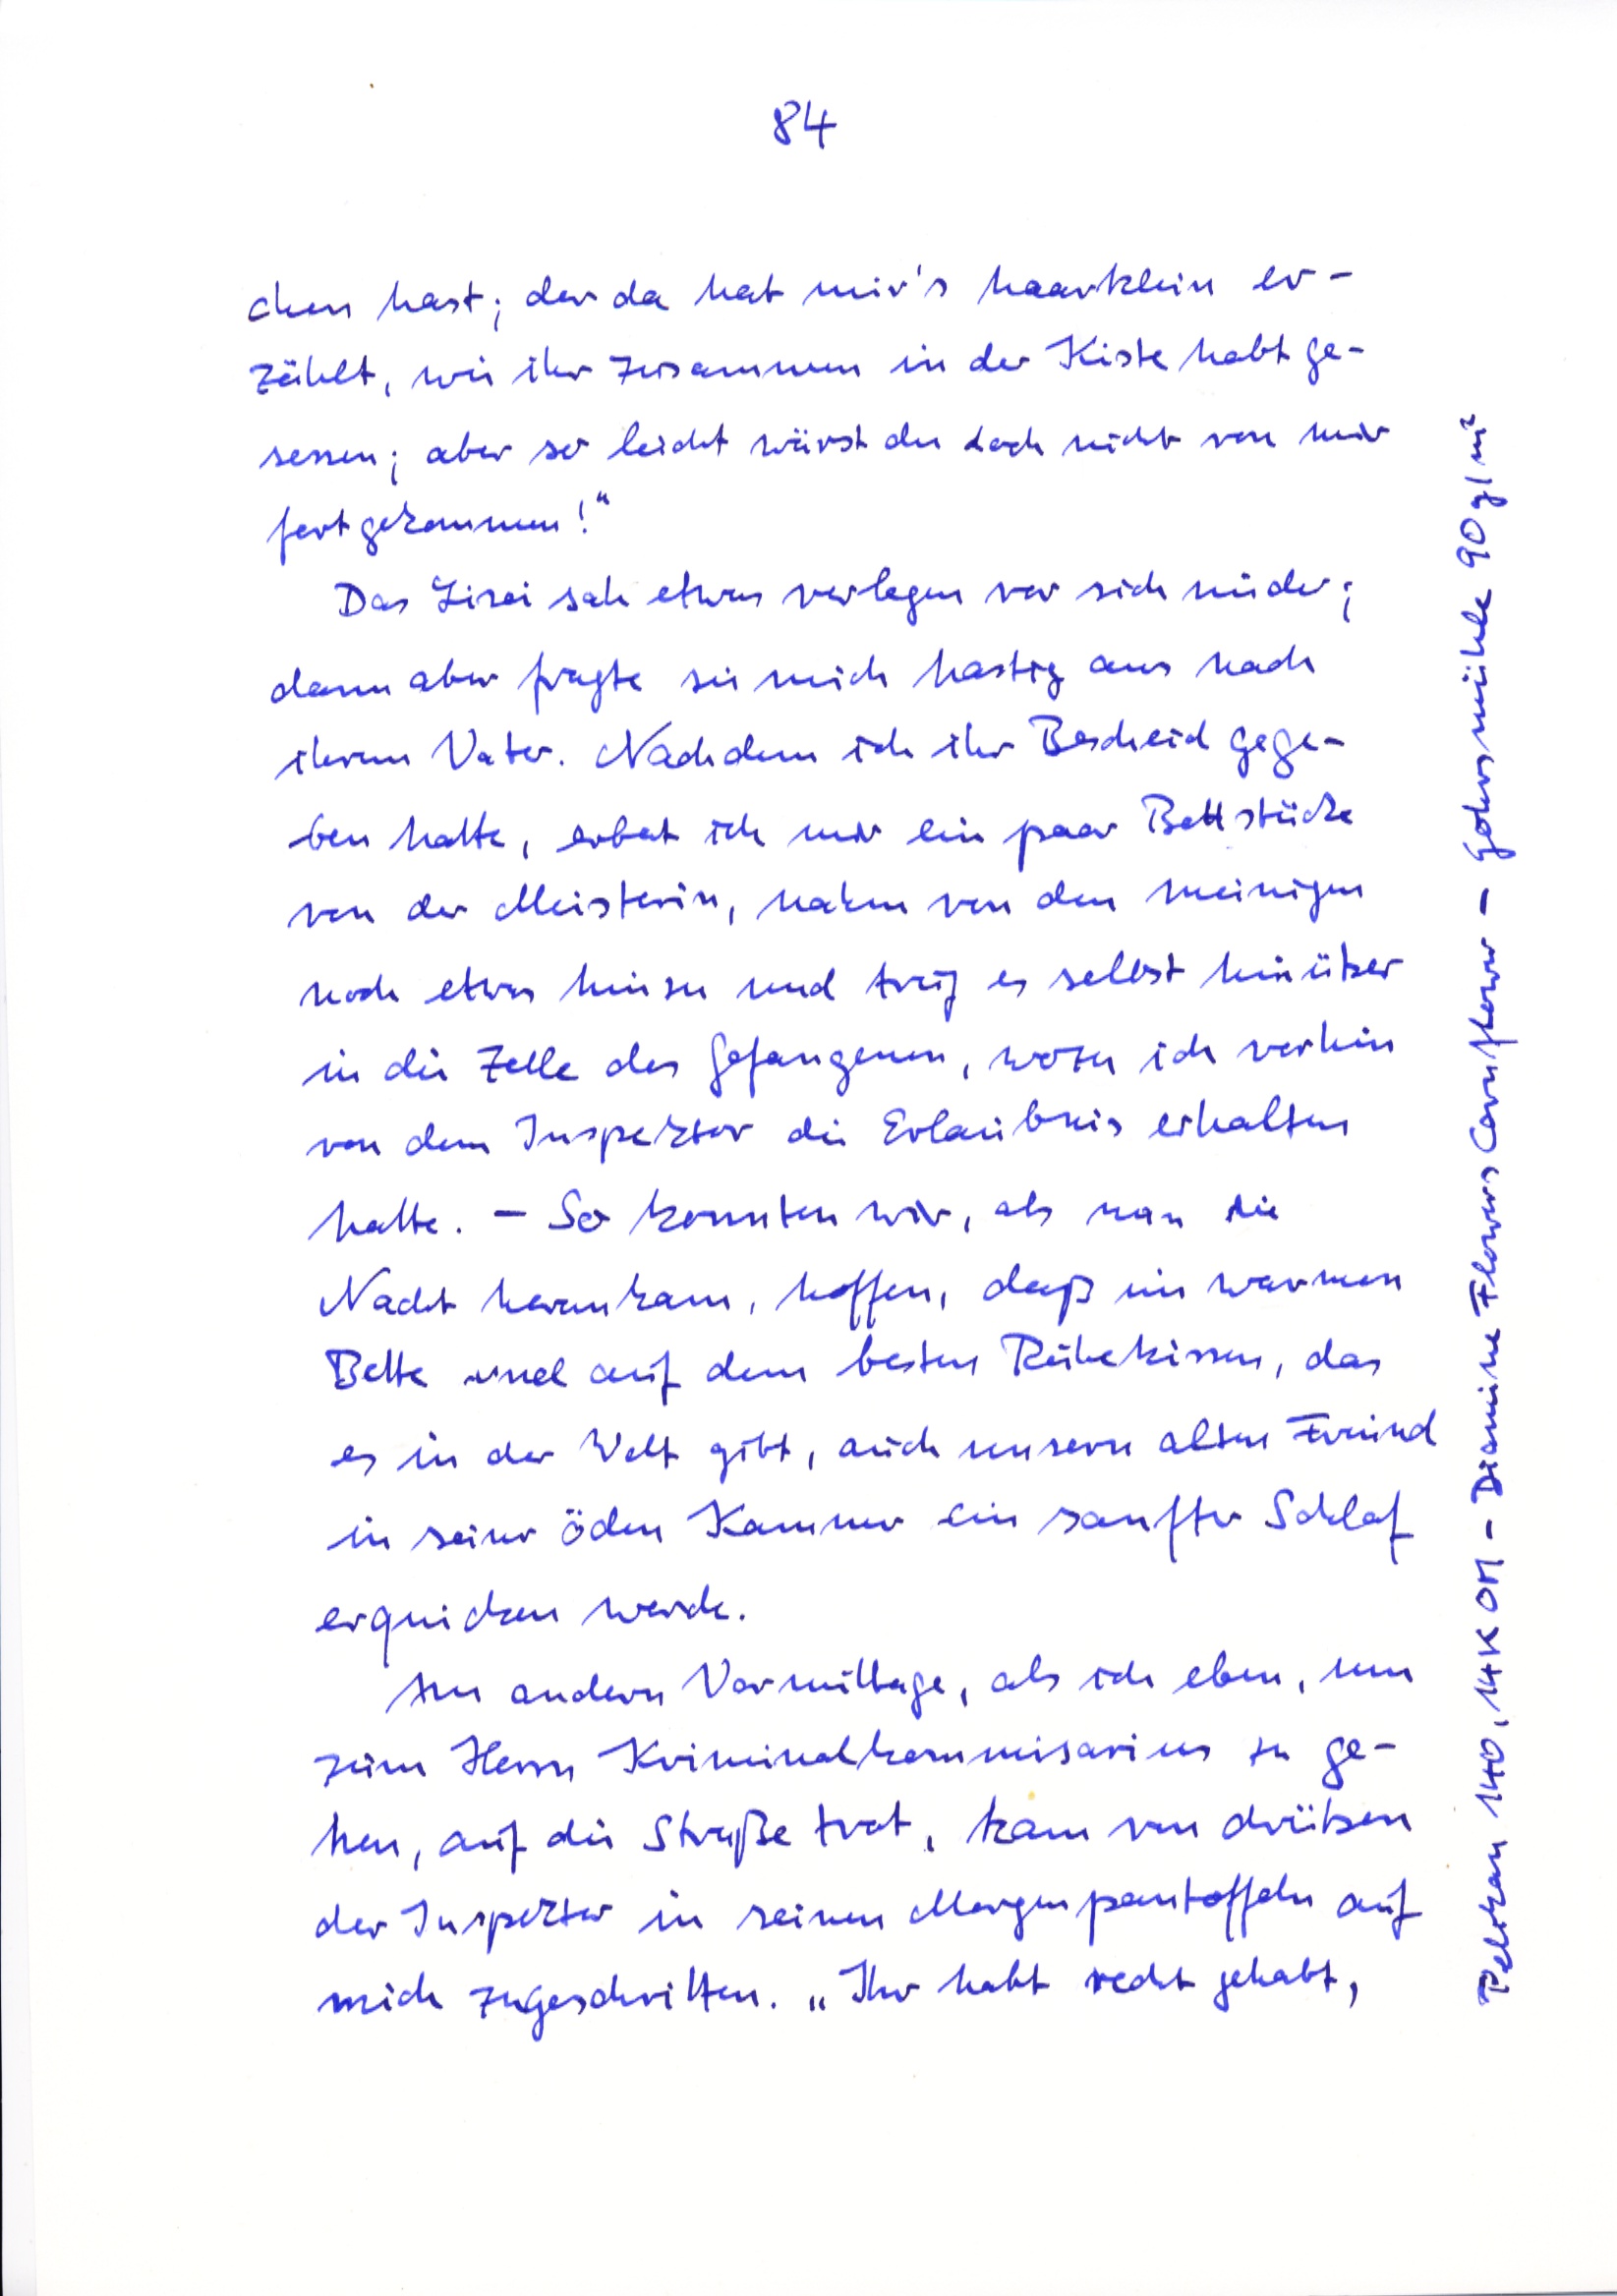 84
chen hast; der da hat mir's haarklein er-
zählt, wie ihr zusammen in der Kiste habt ge-
sessen; aber so leicht wärst du doch nicht von mir
fortgekommen!“
Das Lisei sah etwas verlegen vor sich nieder;
dann aber fragte sie mich hastig aus nach
ihrem Vater. Nachdem ich ihr Bescheid gege-
ben hatte, erbat ich mir ein paar Bettstücke
von der Meisterin, nahm von den meinigen
noch etwas hinzu und trug es selbst hinüber
in die Zelle des Gefangenen, wozu ich vorhin
von dem Inspektor die Erlaubnis erhalten
hatte. – So konnten wir, als nun die
Nacht herankam, hoffen, daß im warmen
Bette und auf dem besten Ruhekissen, das
es in der Welt gibt, auch unsern alten Freund
in seiner öden Kammer ein sanfter Schlaf
erquicken werde.
Am andern Vormittage, als ich eben, um
zum Herrn Kriminalkommisarius zu ge-
hen, auf die Straße trat, kam von drüben
der Inspektor in seinen Morgenpantoffeln auf
mich zugeschritten. „Ihr habt recht gehabt,
Pelikan 140, 14K OM – Diamine Flowers Cornflower – Gohrsmühle 90 g/m²